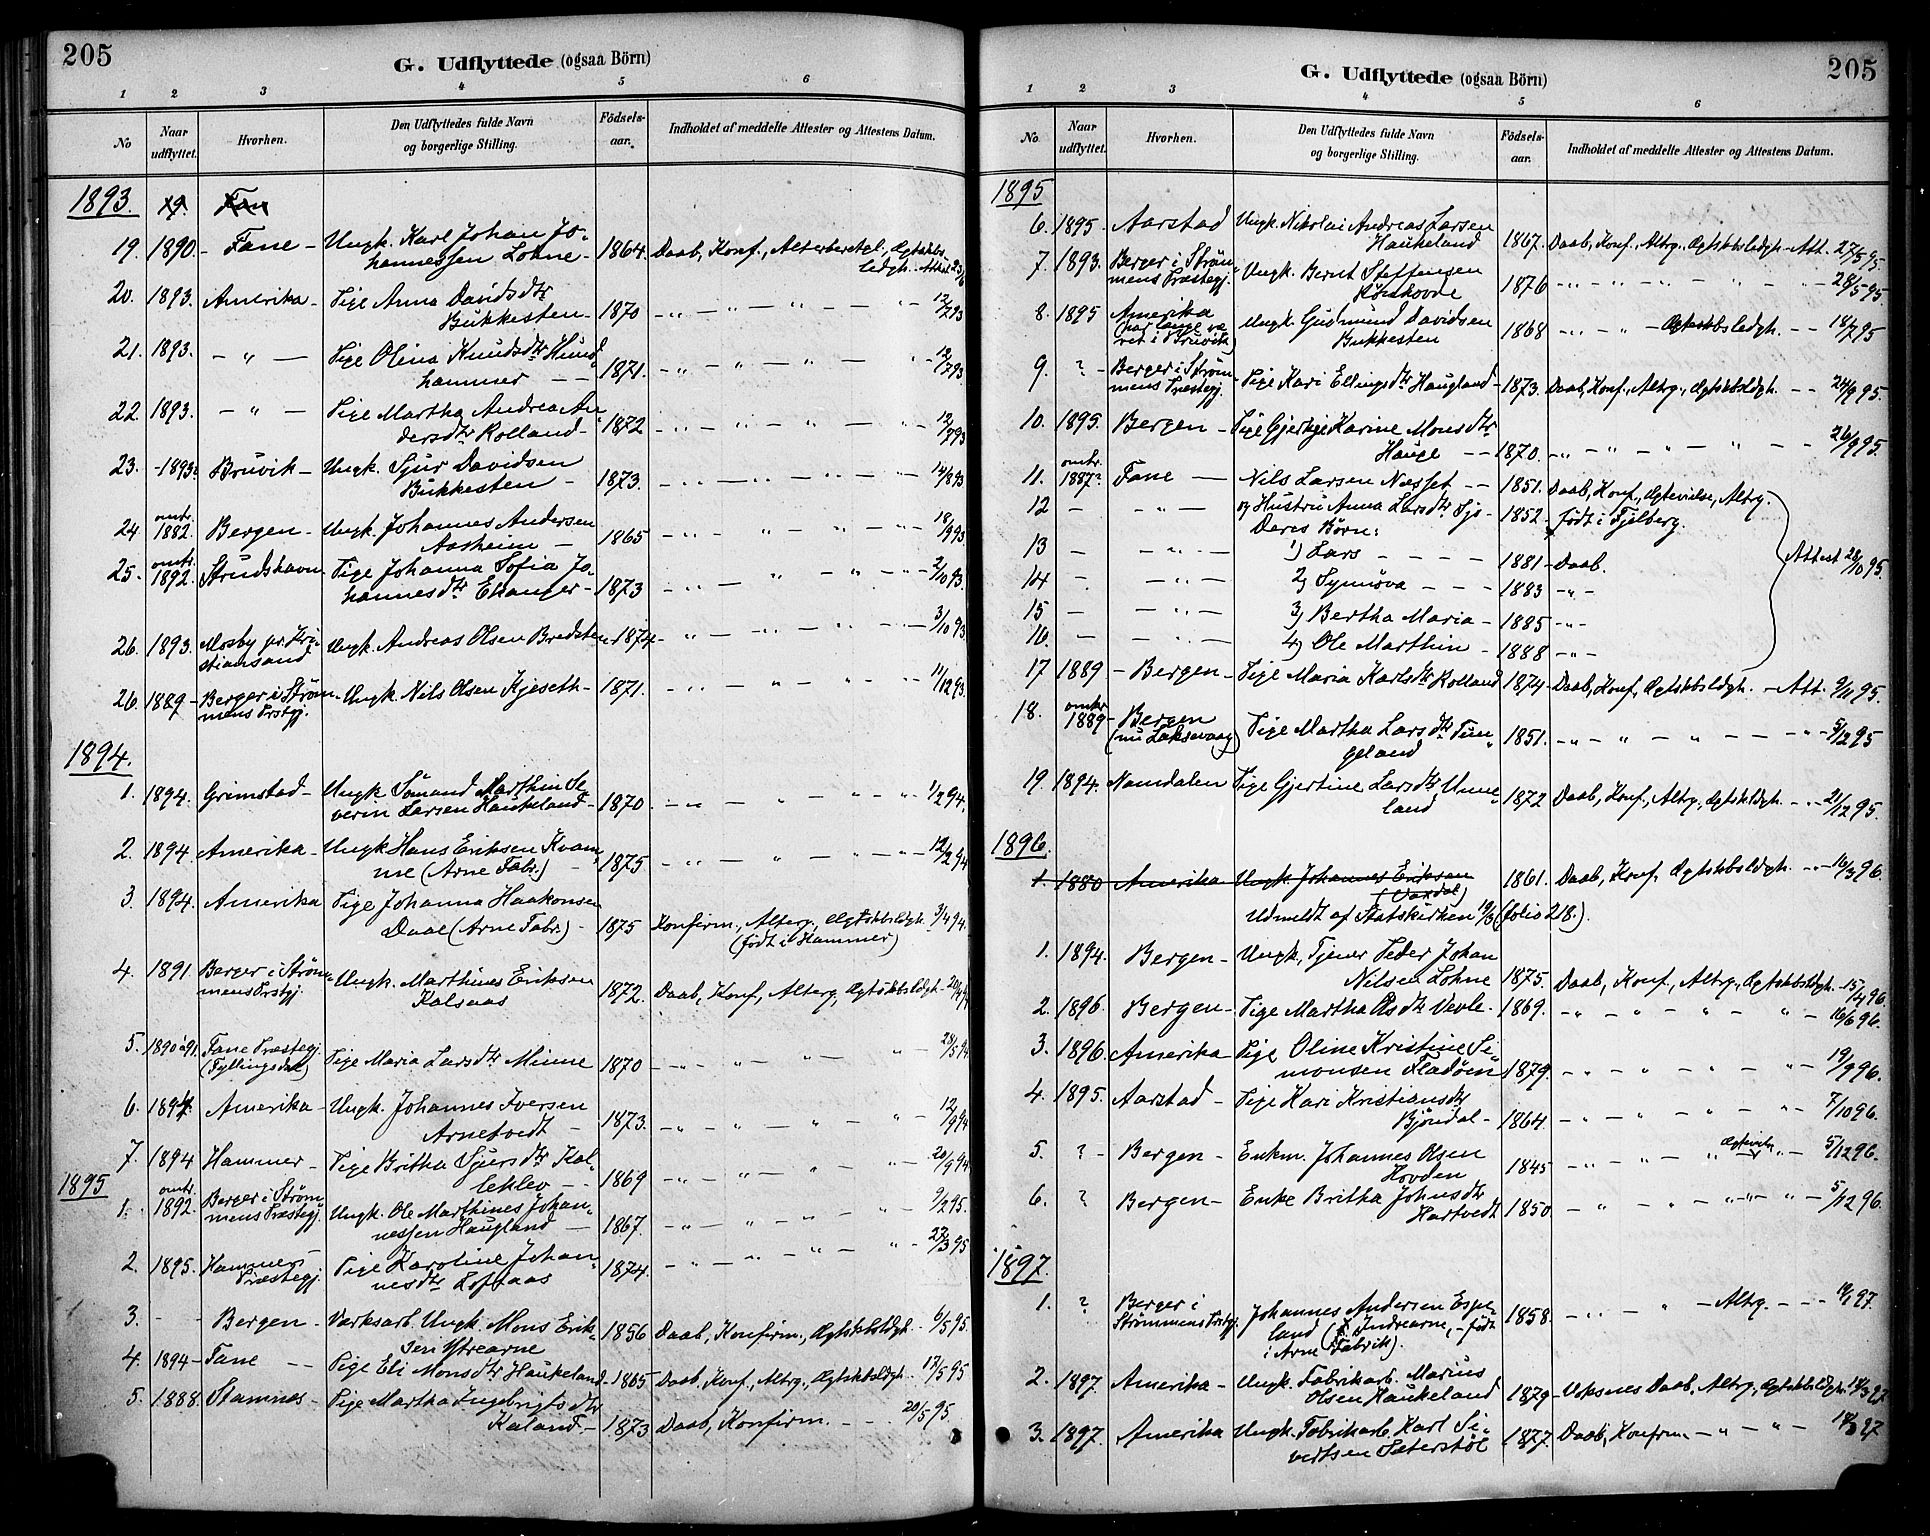 205
G. Udflyttede (ogsaa Börn)
1 2 3 4 5 6
No
Naar udflyttet.
Hvorhen.
Den Udflyttedes fulde Navn og borgerlige Stilling.
Födsels-aar.
Indholdet af meddelte Attester og Attestens Datum.
1893. 19. Fan
19. 1890 - Fane - Ungk. Karl Johan Jo-
hannessen Lohne - 1864. Daab, Konf., Alterberetgl., Ægtskbs-
ledgh. Attest
20. 1893. Amerika - Pige Anna Davidsdtr
Bukkesten - 1870 - " - " - " - " 12/7 93
21. 1893. - " - Pige Olina Knudsdtr Hund-
hammer - - 1871. - " - " - " - " - 12/7 93
22. 1893. - " - Pige Martha Andrea An-
dersdtr Rolland - 1872 - " - " - " - " 12/7 93
23. - 1893. Bruvik - Ungk. Sjur Davidsen
Bukkesten - 1873. - " - " - " - " 14/8 93
24 omtr. 1882. Bergen - Ungk. Johannes Andersen
Aasheim - 1865 - " - " - " - " 18/9 93.
25. omtr. 1892. Strudshavn Pige Johanna Sofia Jo-
hannesdtr Ekanger - 1873 - " - " - " - " 2/10 93.
26. 1893. Mosby pr. Kri-
stiansand Ungk. Andreas Olsen Bredsten - 1874 - " - " - " - " 3/10 93.
26. 1889 - Berger i Ström-
mens Prstgj. - Ungk. Nils Olsen Kjeseth - 1871. - " - " - " - " 11/12 93.
1894.
1. 1894. Grimstad - Ungk. Sömand Marthin Se-
verin Larsen Haukeland - 1870 - " - " - " - " 1/2 94.
2. 1894. Amerika - Ungk Hans Eriksen Kvam-
me (Arne Fabr.) - 1875 - " - " - " - " 12/2 94
3. 1894. Amerika Pige Johanna Haakonsen
Daae (Arne Fabr.) - 1875 Konfirm., Alterg., Ægtskbsledgh. 3/4 94.
(født i Hammer)
4. 1891. Berger i Ström-
mens Prstgj. - Ungk. Marthines Eriksen
Kalsaas 1872. Daab, Konf., Alterg., Ægtskbsldgh -
5. 1890 à 91. Fane Præstegj.
(Fyllingsdal) Pige Maria Larsdtr Minne 1870 - " - " - " 28/5 94
6. 1894. Amerika - Ungk. Johannes Iversen
Arnetvedt - 1873. - " - " - " - " 12/9 94
7. 1894 Hammer - Pige Britha Sjursdtr Kal-
leklev - - 1869 - " - " - " - " 20/9 94.
1895
1. omtr. 1892. Berger i Ström-
mens Præstegj. Ungk. Ole Marthines Johan-
nessen Haugland - 1867. - " - " - " - " 9/2 95.
2. 1895. Hammer
Præstegj. Pige Karoline Johan-
nesdtr Loftaas 1874. - " - " - " - " 27/3 95
3. - - Bergen - Værksarb. Ungk. Mons Erik-
sen Ytrearne 1856 Daab, Konfirm., Ægtskbsldgh. 6/5 95.
4. 1894 - Fane - - Pige Eli Monsdtr Haukeland - 1865 Daab, Konf., Altrg., Ægtskbsldgh. 17/5 95
5. 1888. Stamnes - Pige Martha Ingebrigtsdtr
Kaland - 1873 Daab, Konfirm. - - - 20/5 95.
205
G. Udflyttede (ogsaa Börn)
1 2 3 4 5 6
No.
Naar udflyttet.
Hvorhen.
Den Udflyttedes fulde Navn og borgerlige Stilling.
Födsels-aar.
Indholdet af meddelte Attester og Attestens Datum.
1895
6. 1895 - Aarstad Ungk. Nikolai Andreas Larsen
Haukeland 1867. Daab, Konf., Altrg., Ægtskbsledgh - Att. 27/5 95.
7. 1893. Berger i Ström-
mens Præstegj. Ungk. Bernt Steffensen
1876 - " - " - " - " 28/5 95
8. 1895 Amerika
(har længe væ-
ret i Bruvik) Ungk. Gudmund Davidsen
Bukkesten 1868 - " - " - Ægtskbsledgh. - - 18/7 95
9. ? - Berger i Ström-
mens Præstegj. - Pige Kari Ellingsdtr Haugland - 1873. Daab, Konf., Altrg., Ægtskbsldgh. - - 24/9 95.
10. 1895. Bergen - Pige Gjertje Karine Monsdtr
Hauge - - 1870. - " - " - " - " - 26/9 95.
11. omtr. 1887? Fane - Nils Larsen Næsset - - 1851. Daab, Konf., Ægtevielse, Altrg.
12 - - " - og Hustru Anna Larsdtr Sjo- 1852. født i Fjelberg.
Deres Börn:
13 - - " - 1) Lars - - - - 1881 - Daab. Attest 28/10 95.
14 - - " - 2) Synnöva - - - 1883 - " -
15 - - " - 3) Bertha Maria - 1885 - " -
16. - - " - 4) Ole Marthin - 1888 - " -
17 1889 - Bergen - Pige Maria Karlsdtr Rolland 1874 - Daab, Konf., Ægtskbsldgh. - Att. 9/11 95.
18. omtr 1889 - Bergen
(nu Laksevaag) Pige Martha Larsdtr Tun-
geland 1851. - " - " - " - " - 5/12 95
19. 1894. Namdalen Pige Gjertine Larsdtr Unne-
land 1872 Daab, Konf., Altrg., Ægtskldgh. - " - 21/12 95.
1896.
1. 1880 Amerika Ungk. Johannes Eriksen
(Vardal) 1861. Daab, Konf. Ægtskbsldgh. - " - 16/3 96.
Udmeldt af Statskirken 19/3 (folio 218.).
1. 1894. Bergen - Ungk. Tjener Peder Johan
Nilsen Lohne 1875. Daab, Konf., Altrg., Ægtskbsldgh. 15/4 96.
2. 1896. Bergen - Pige Martha Olsdtr Vevle - 1869. - " - " - " - " - 16/6 96.
3. 1896. Amerika - Pige Oline Kristine Si-
monsen Fladöen 1879. - " - " - " - " 19/9 96.
4. 1895. Aarstad - Pige Kari Kristiansdtr
Björndal - 1864. - " - " - " - " 7/10 96.
5. ? - Bergen - Enkm. Johannes Olsen
Hovden 1845 - " - " - " Ægtevielse " - 5/12 96.
6. ? Bergen - Enke Britha Johnsdtr
Hartvedt 1850 - " - " - " - " - 5/12 96.
1897.
1. ? Berger i
Strömmens Prstgj. Johannes Andersen Espe-
land (i Indrearne, - født
i Arne Fabrik). 1858. - " - " - Altrg. - - -
2. 1897. Amerika - Ungk. Fabrikarb. Marius
Olsen Haukeland 1879 - Voksnes Daab, Altrg., Ægtskbsldgh.
3. 1897. Amerika Ungk. Fabrikarb. Karl Si-
vertsen Sæterstöl 1877. Daab, Konfirm. - " - " -